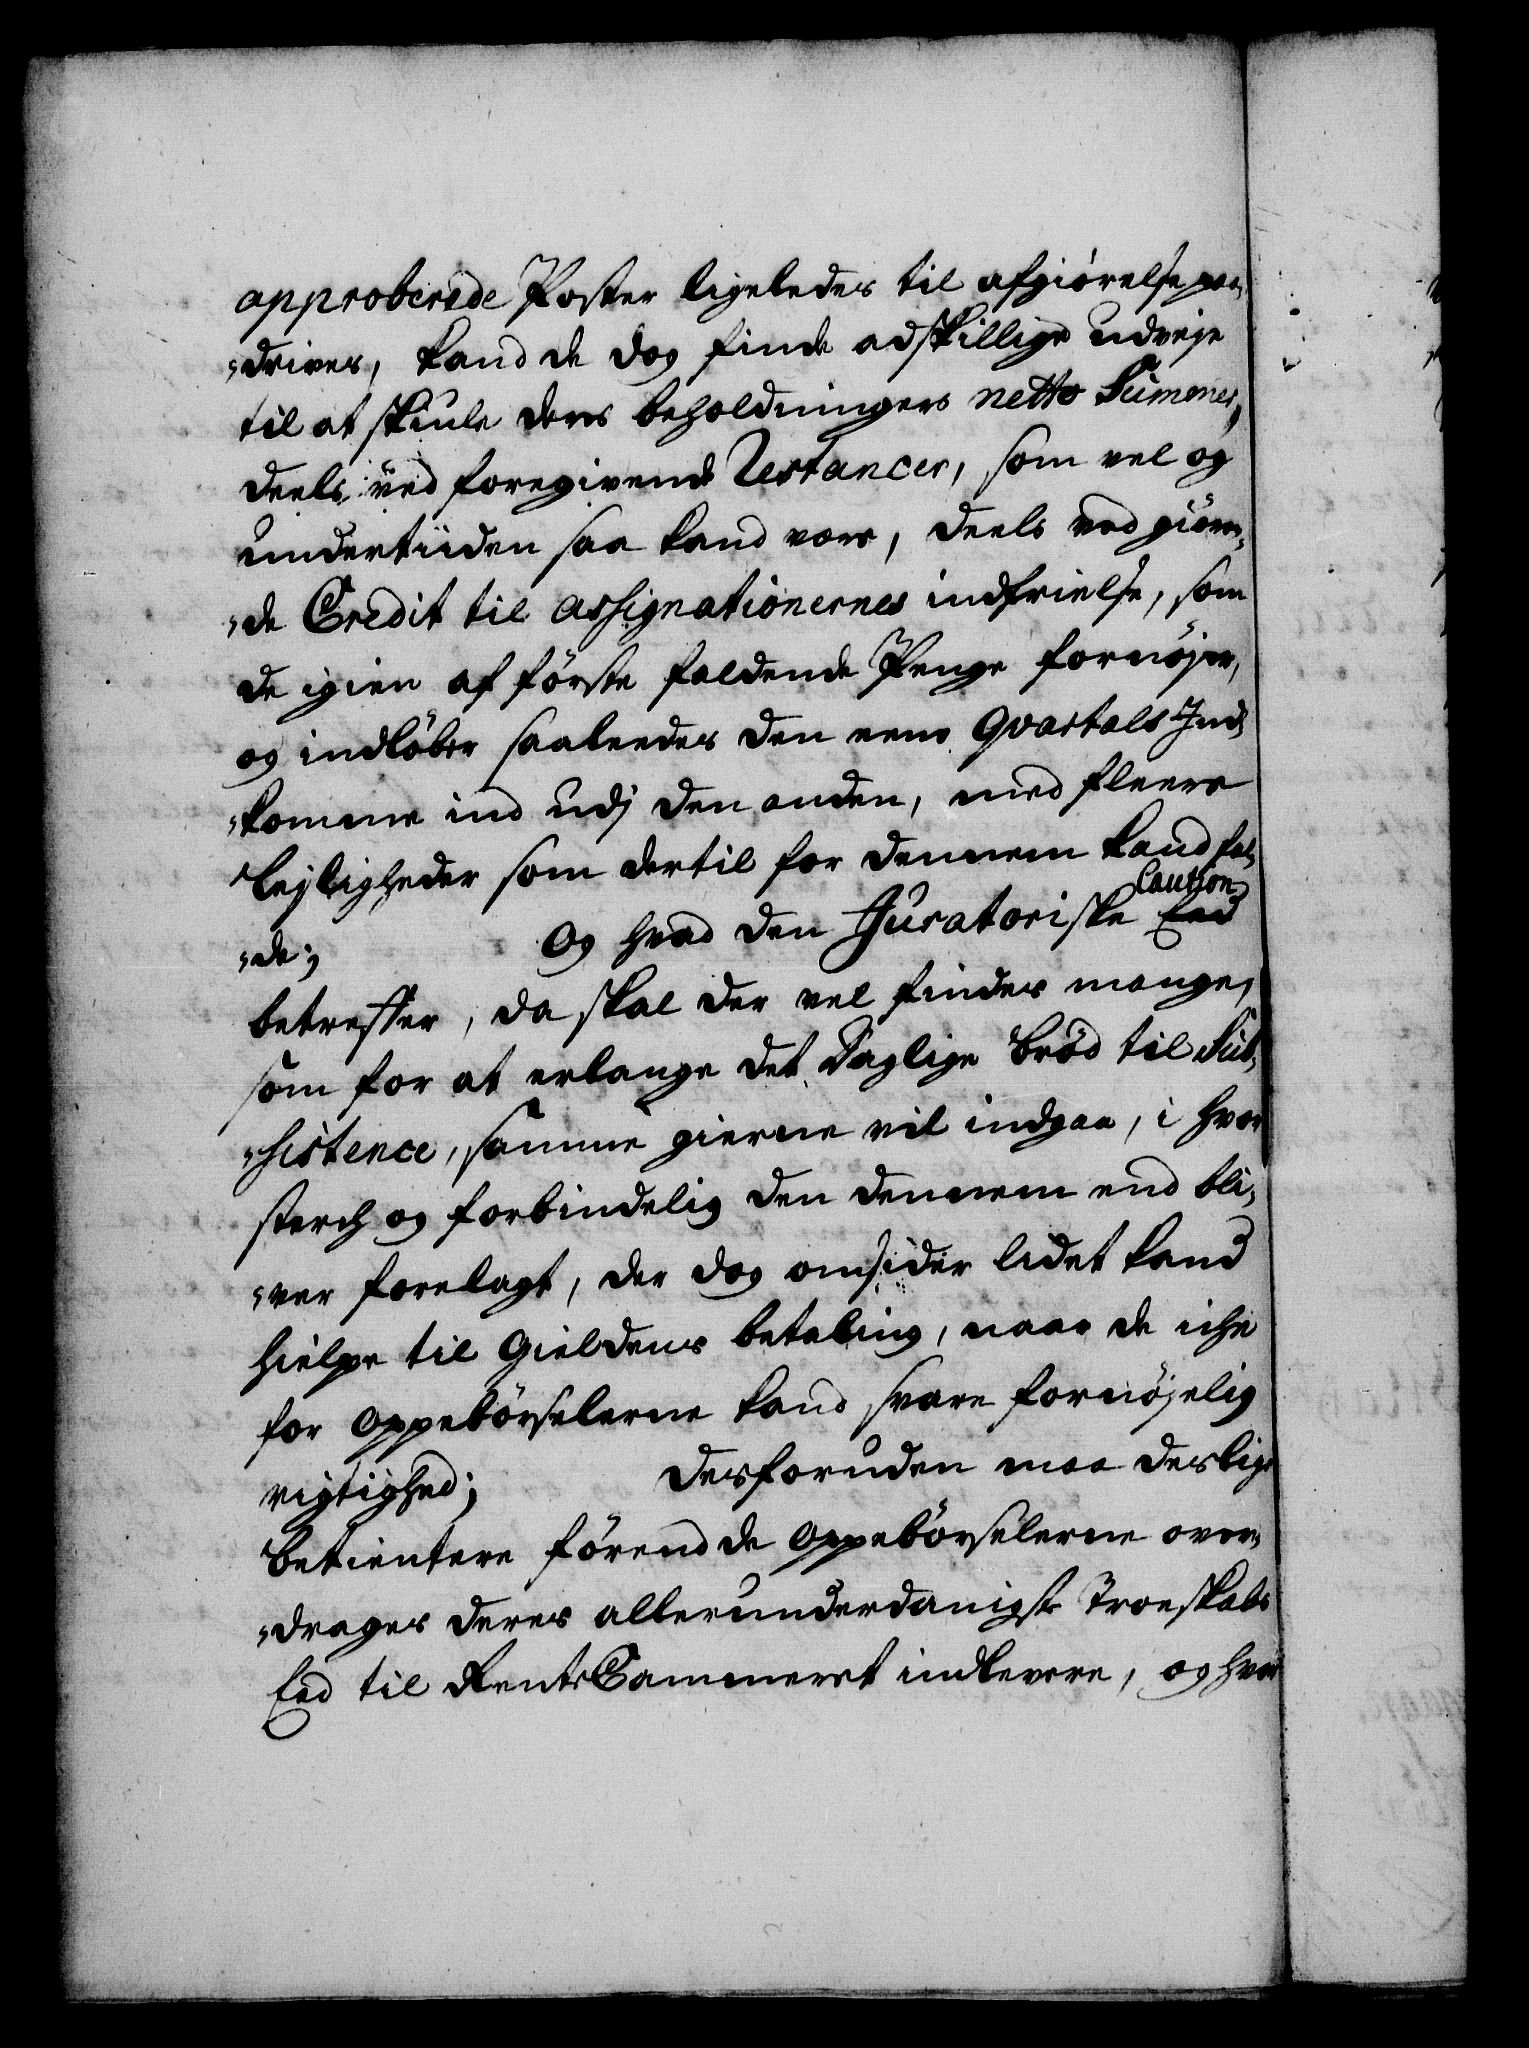 approberede Poster ligeledes til afgiörelse paa„
„drives, kand de dog finde adskillige udveje
til at skiule deres beholdningers netto Summer,
deels ved foregivende Restancer, som vel og
undertiiden saa kand være, deels ved giören„
„de Credit til assignationernes indfrielse, som
de igien af förste faldende Penge fornöjer,
og indlöber saaledes den eene Qvartals Ind„
„komme ind udj den anden, med fleere
Lejligheder som dertil for dennem kand fal„
„de; Og hvad den Juratoriske Caution
betreffer, da skal der vel findes mange,
som for at erlange det daglige bröd til Sub„
„sistence, samme gierne vil indgaa, i hvor
sterch og forbindelig den dennem end bli„
„ver forelagt, der dog omsider lidet kand
hielpe til Gieldens betaling, naar de iche
for Oppebörselerne kand svare fornöjelig
rigtighed; Desforuden maa deslige
betientere förend de Oppebörselerne over„
„drages deres allerunderdanigste Troeskabs
Eed til RenteCammeret indlevere, og hvor